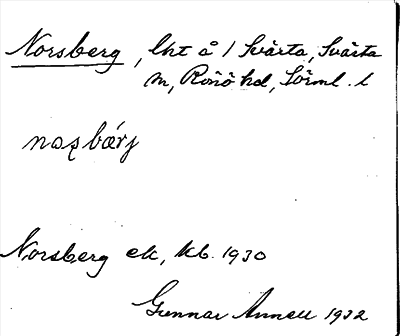 Norsberg, lht å / Svärta, Svärta
sn, Rönö hd, Sörml. l
noʂbærj
Norsberg ek, kb. 1930
Gunnar Annell 1932